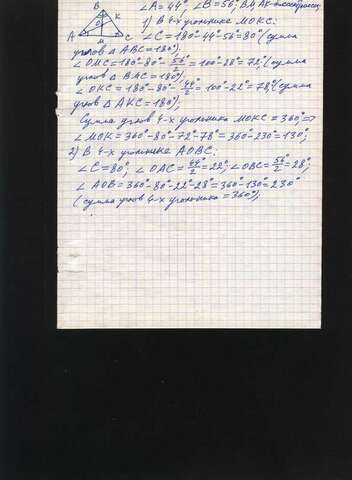 B
∠A=44°, ∠B=56°, BM, AK-биссектрисы
O K
1) В 4-х угольнике MOKC:
∠C=180°-44°-56°=80° (сумма
A M C
углов △ ABC=180°),
∠OMC=180°-80°-56°/2=100°-28°=72° (сумма
углов △ BAC=180°);
∠OKC=180°-80°-44°/2=100°-22°=78° (сумма
углов △ AKC=180°),
Сумма углов 4-х угольника MOKC=360° =>
∠MOK=360°-80°-72°-78°=360°-230°=130°;
2) В 4-х угольнике AOBC:
∠C=80°, ∠OAC=44°/2=22°; ∠OBC=56°/2=28°,
∠AOB=360°-80°-22°-28°=360°-130°=230°
(сумма углов 4-х угольника=360°);